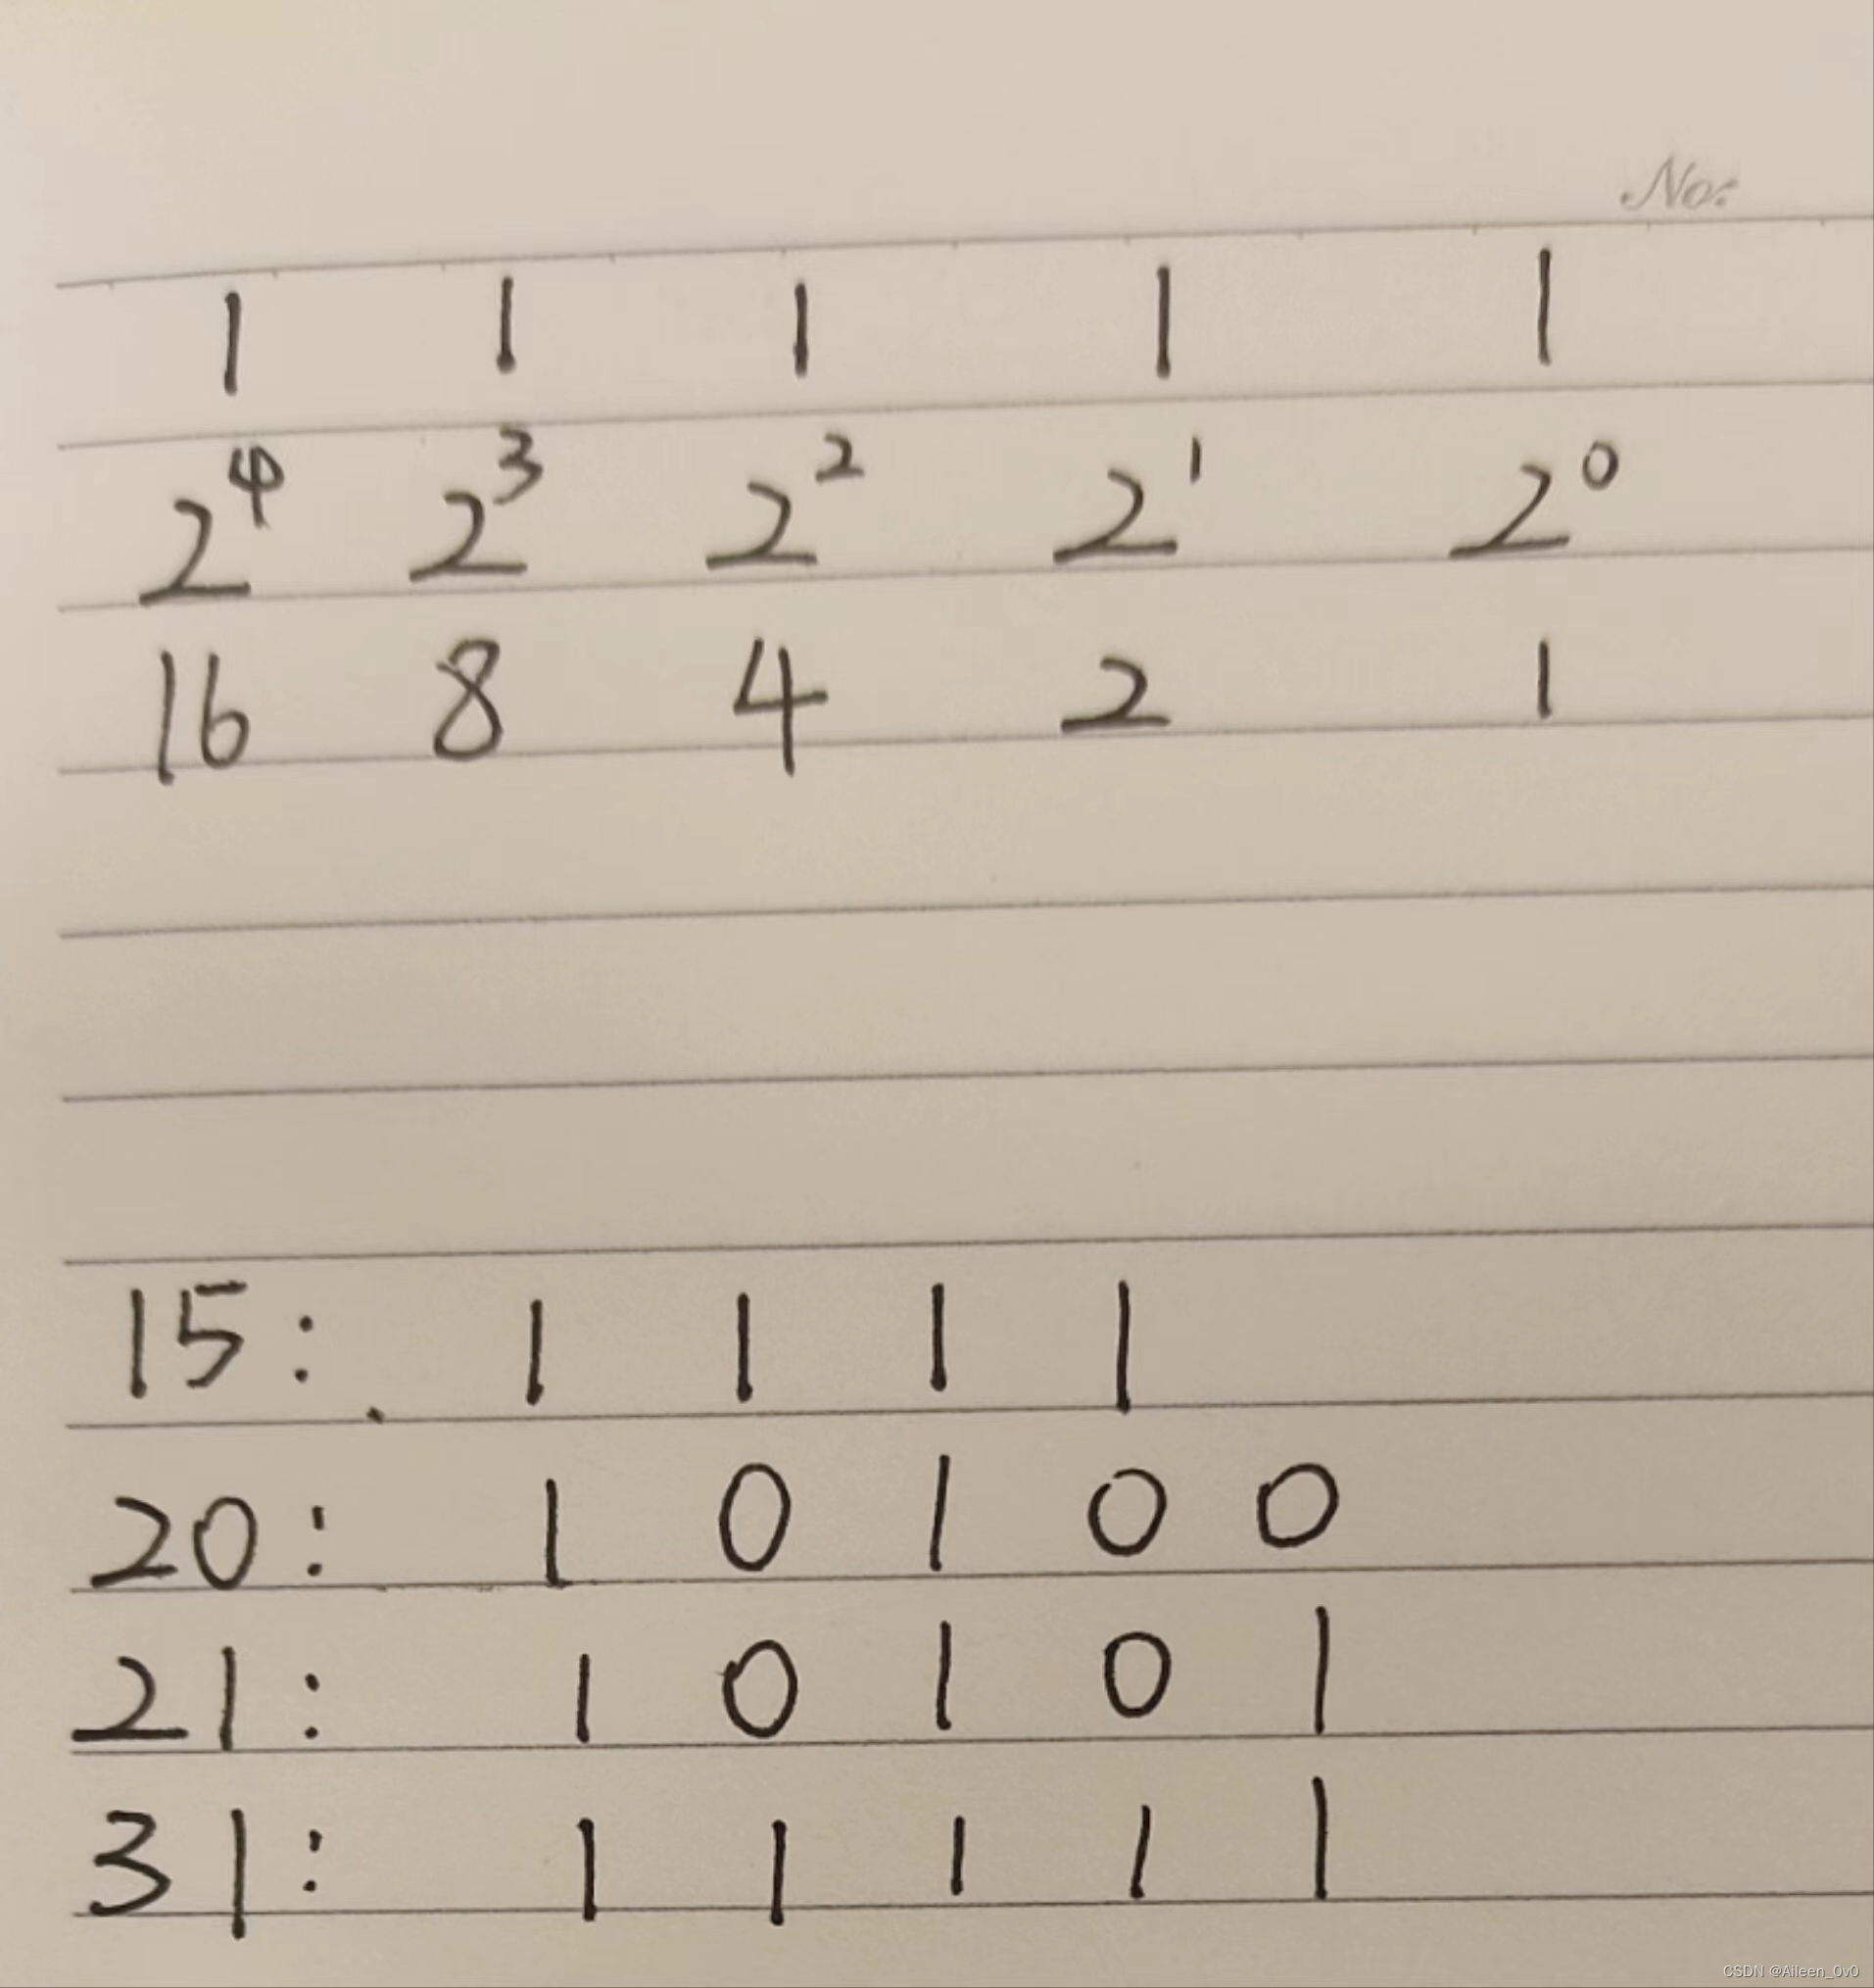 No:
1 1 1 1 1
2⁴ 2³ 2² 2¹ 2⁰
16 8 4 2 1
15: 1 1 1 1
20: 1 0 1 0 0
21: 1 0 1 0 1
31: 1 1 1 1 1
CSDN @Aileen_0v0